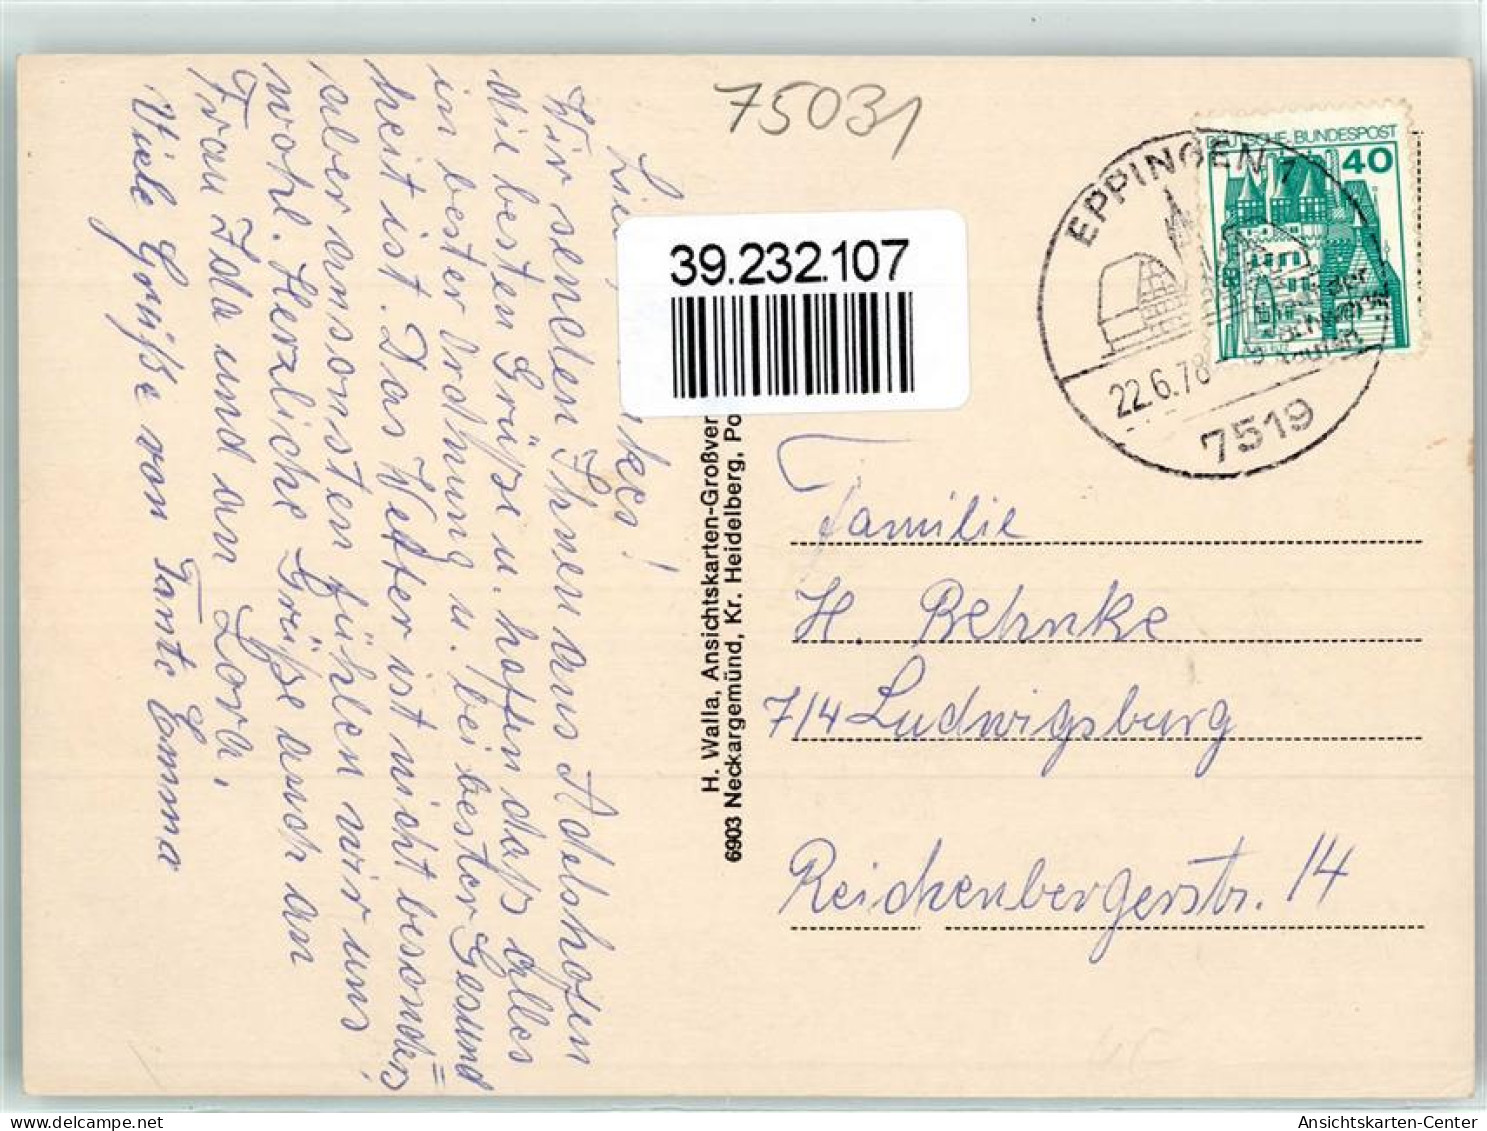 75031
Wir senden Ihnen aus Adelshofen
die besten Grüße u. hoffen daß alles
in bester Ordnung u. bei bester Gesund
heit ist. Das Wetter ist nicht besonders,
aber ansonsten fühlen wir uns
wohl. Herzliche Grüße auch an
Frau Ida und an Lora,
Viele Grüße von Tante Emma
39.232.107
H. Walla, Ansichtskarten-Großver
6903 Neckargemünd, Kr. Heidelberg, Po
DEUTSCHE BUNDESPOST
40
EPPINGEN 1
22.6.78
7519
Familie
H. Behnke
714 Ludwigsburg
Reichenbergerstr. 14
Ansichtskarten-Center